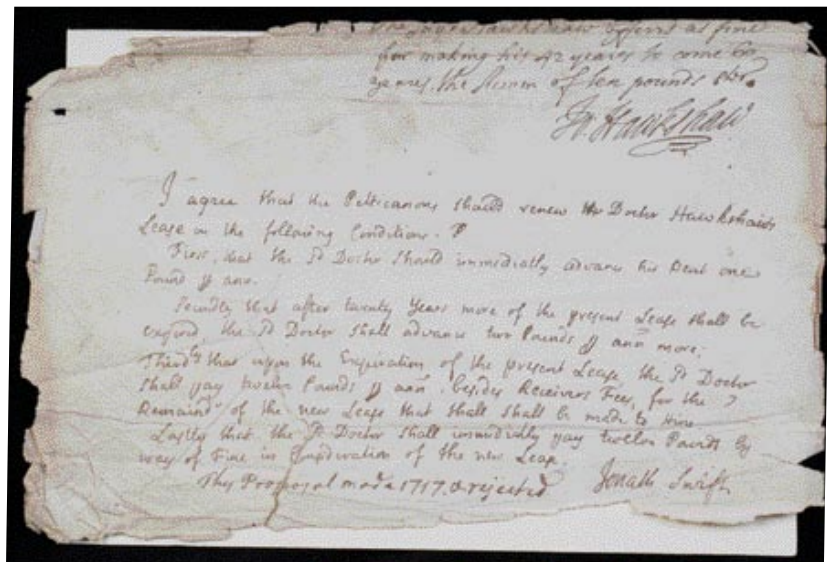 Hawkshaw offers as fine
for making his 42 years to come 60
years, the Summ of ten pounds ster.
Jo. Hawkshaw
I agree that the Petticanons should renew Doctor Hawkshaws
Lease on the following Conditions.
First, that the sd Doctor should immediatly advance his Rent one
Pound p ann.
Secondly that after twenty Years more of the present Lease shall be
expired, the sd Doctor shall advance two Pounds p ann more.
Thirdly that upon the Expiration of the present Lease, the sd Doctor
shall pay twelve Pounds p ann. besides Receivers Fees, for the
Remaindr of the new Lease that shall shall be made to him.
Lastly that the sd Doctor shall immediatly pay twelve Pounds by
way of Fine in Consideration of the new Lease.
This Proposal made 1717. & rejected Jonath Swift